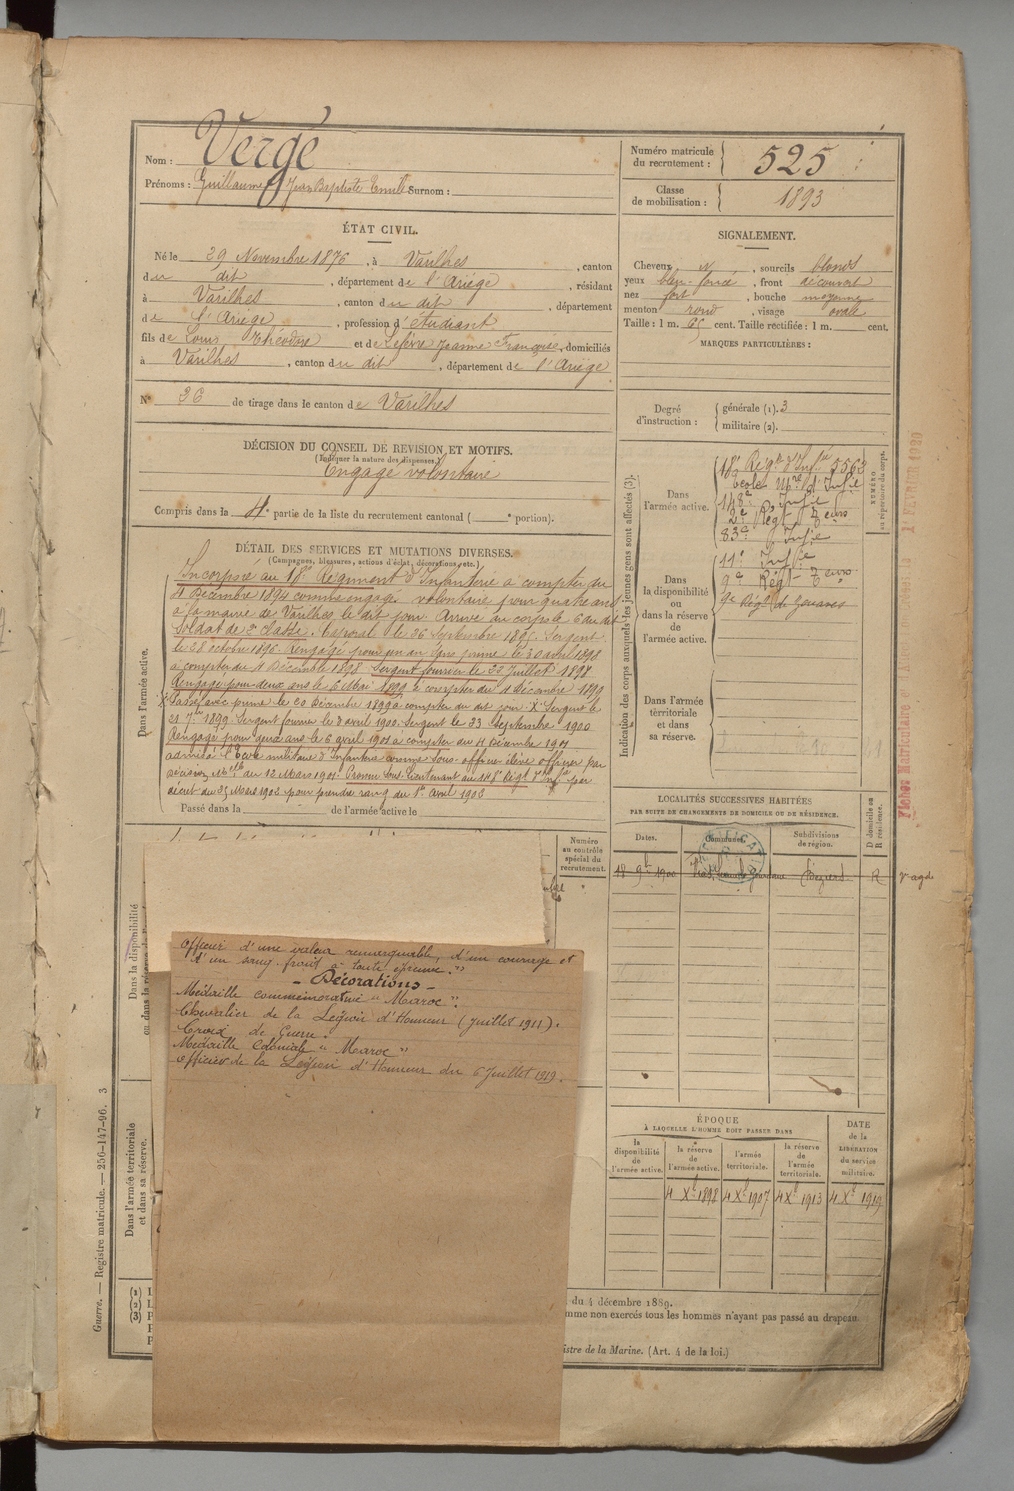 Nom : Vergé
Prénoms : Guillaume Jean Baptiste Emile Surnom :
Numéro matricule du recrutement : 525
Classe de mobilisation : 1893
ÉTAT CIVIL.
Né le 29 Novembre 1876, à Varilhes, canton
du dit, département de l'Ariège, résidant
à Varilhes, canton du dit, département
de l'Ariège, profession d'étudiant
fils de Louis Théodore et de Lefèvre Jeanne Françoise, domiciliés
à Varilhes, canton du dit, département de l'Ariège
N° 36 de tirage dans le canton de Varilhes
SIGNALEMENT.
Cheveux N, sourcils blonds
yeux bleu foncé, front découvert
nez fort, bouche moyenne
menton rond, visage ovale
Taille : 1 m. 65 cent. Taille rectifiée : 1 m. cent.
MARQUES PARTICULIÈRES :
Degré d'instruction : générale (1). 3
militaire (2).
DÉCISION DU CONSEIL DE REVISION ET MOTIFS.
(Indiquer la nature des dispenses.)
Engagé volontaire
Compris dans la 4e partie de la liste du recrutement cantonal ( e portion).
DÉTAIL DES SERVICES ET MUTATIONS DIVERSES.
(Campagnes, blessures, actions d'éclat, décorations, etc.)
Dans l'armée active.
Incorporé au Régiment d'Infanterie à compter du
4 Décembre 1894 comme engagé volontaire pour quatre ans
à la mairie de Varilhes le dit jour. Arrivé au corps le 6 du dit
Soldat de 2e classe. Caporal le 26 Septembre 1895. Sergent
le 28 octobre 1896. Rengagé pour un an avec prime le 30 avril 1898
à compter du 4 Décembre 1898. Sergent fourrier le Juillet 1898
Rengagé pour deux ans le 6 Mai 1899 à compter du 4 Décembre 1899
Passé avec prime le 20 Décembre 1899 à compter du dit jour. X Sergent le
21 7bre 1899. Sergent fourrier le 8 avril 1900. Sergent le 23 Septembre 1900
Rengagé pour deux ans le 6 avril 1901 à compter du 4 Décembre 1901
admis à l'Ecole militaire d'Infanterie comme sous-officier élève officier par
décision Mlle du 12 Mars 1901. Promu Sous-Lieutenant au 148e Régt d'Infie par
décret du 25 Mars 1902 pour prendre rang du 1er Avril 1902
Passé dans la de l'armée active le
Indication des corps auxquels les jeunes gens sont affectés (3).
NUMÉRO au répertoire du corps.
Dans l'armée active.
Régt d'Infie 5563
École Mre d'Infie
148e Infie
2e Régt Zens
83e Infie
Dans la disponibilité ou dans la réserve de l'armée active.
11e Infie
9e Régt Zens
9e Régt de Zouaves
Dans l'armée territoriale et dans sa réserve.
LOCALITÉS SUCCESSIVES HABITÉES
PAR SUITE DE CHANGEMENTS DE DOMICILE OU DE RÉSIDENCE.
Dates.
Communes.
Subdivisions de région.
D domicile ou R résidence.
18 9b 1900
Béziers
R
Numéro au contrôle spécial du recrutement.
Dans la disponibilité
Officier d'une valeur remarquable, d'un courage et
d'un sang-froid à toute épreuve."
- Décorations -
Médaille commémorative "Maroc".
Chevalier de la Légion d'Honneur (Juillet 1911).
Croix de Guerre.
Médaille Coloniale "Maroc"
Officier de la Légion d'Honneur du 6 Juillet 1919.
Dans l'armée territoriale et dans sa réserve.
ÉPOQUE
À LAQUELLE L'HOMME DOIT PASSER DANS
la disponibilité de l'armée active.
la réserve de l'armée active.
l'armée territoriale.
la réserve de l'armée territoriale.
DATE de la LIBÉRATION du service militaire.
4 Xb 1898
4 Xb 1907
4 Xb 1913
4 Xb 1919
(1)
(2)
(3)
du 4 décembre 1889.
mme non exercés tous les hommes n'ayant pas passé au drapeau
istre de la Marine. (Art. 4 de la loi.)
Guerre. — Registre matricule. — 256-147-96. 3